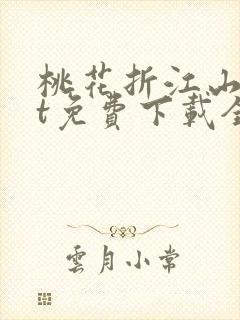 桃花折江山
t免費下載全
雲月小常